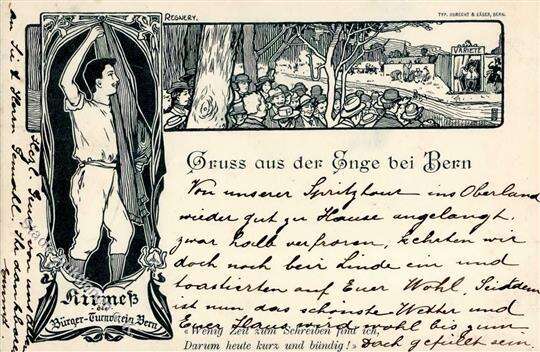 REGNERY.
TYP. OBRECHT & KÄSER, BERN.
VARIETÉ
Gruss aus der Enge bei Bern
Von unserer Spritztour ins Oberland
wieder gut zu Hause angelangt.
zwar halb verfroren, kehrten wir
doch noch bei Linde ein und
toastierten auf Euer Wohl. Seitdem
ist nun das schönste Wetter und
Euer wohl bis zum
Dach gefüllt sein.
«Wenig Zeit zum Schreiben find ich,
Darum heute kurz und bündig!»
Kirmeß
des
Bürger-Turnverein Bern
An Sie & Herrn Gemahl
Herzl.